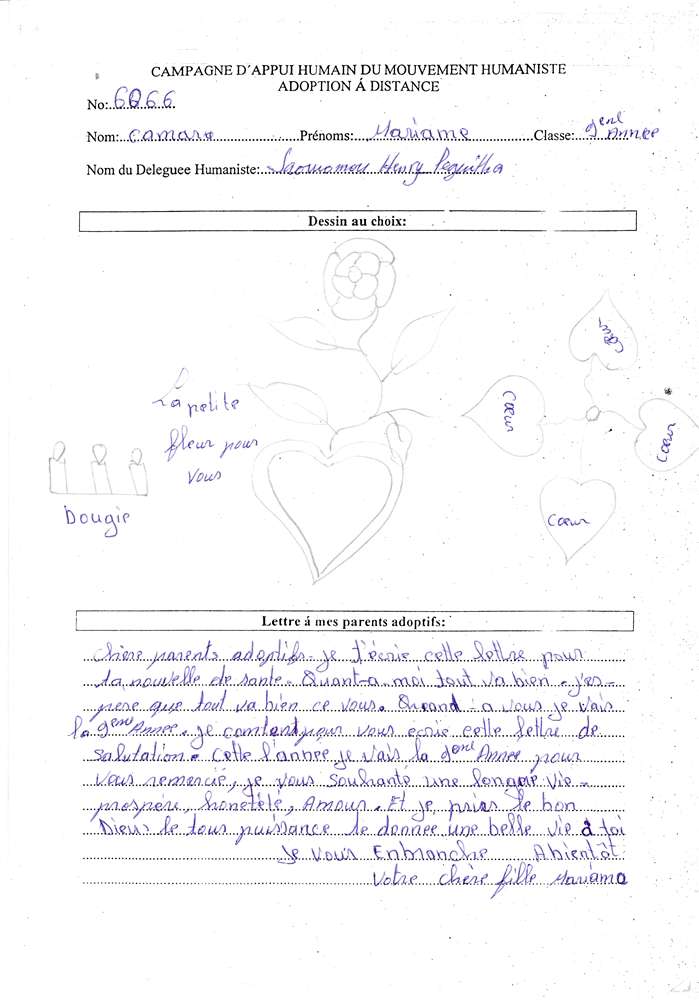 CAMPAGNE D'APPUI HUMAIN DU MOUVEMENT HUMANISTE
ADOPTION Á DISTANCE
No: 6066
Nom: Camara Prénoms: Mariame Classe: 9ème Année
Nom du Deleguee Humaniste: Henry
Dessin au choix:
Cœur
Cœur
Cœur
La petite
fleur pour
vous
Dougie
Cœur
Lettre á mes parents adoptifs:
Chère parents adoptifs je t'écrie cette lettre pour
ta nouvelle de sante. Quant-a moi tout va bien. j'es-
pere que tout va bien ce vous. Quand : a vous je vais
la 9eme Année. je content pour vous ecrie cette lettre de
salutation. Cette l'année je vais la 9eme Année pour
vous remercié, je vous souhante une longue vie -
prospère, honetété, Amour. Et je prier le bon
Dieu le tous puissance te donnee une belle vie à toi
Je vous Enbranche Abientôt.
Votre chère fille Mariama